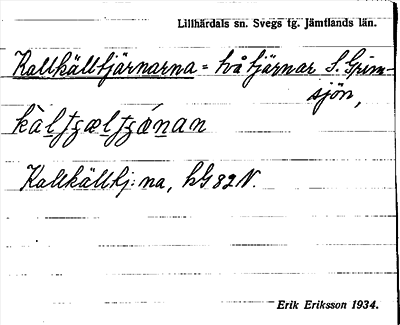 Lillhärdals sn. Svegs tg. Jämtlands län.
Kallkälltjärnarna = två tjärnar S. Grim-
sjön,
Kallkälltj:na, hG 82 N.
Erik Eriksson 1934.